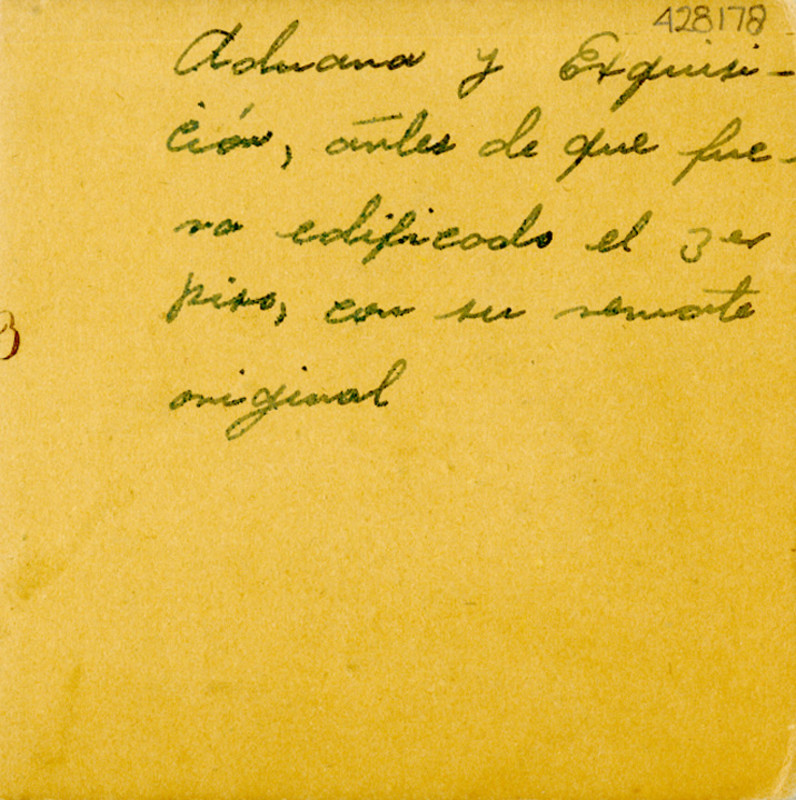 428178
Aduana y Exquisi-
ción, ántes de que fue-
ra edificado el 3er
piso, con su remate
original